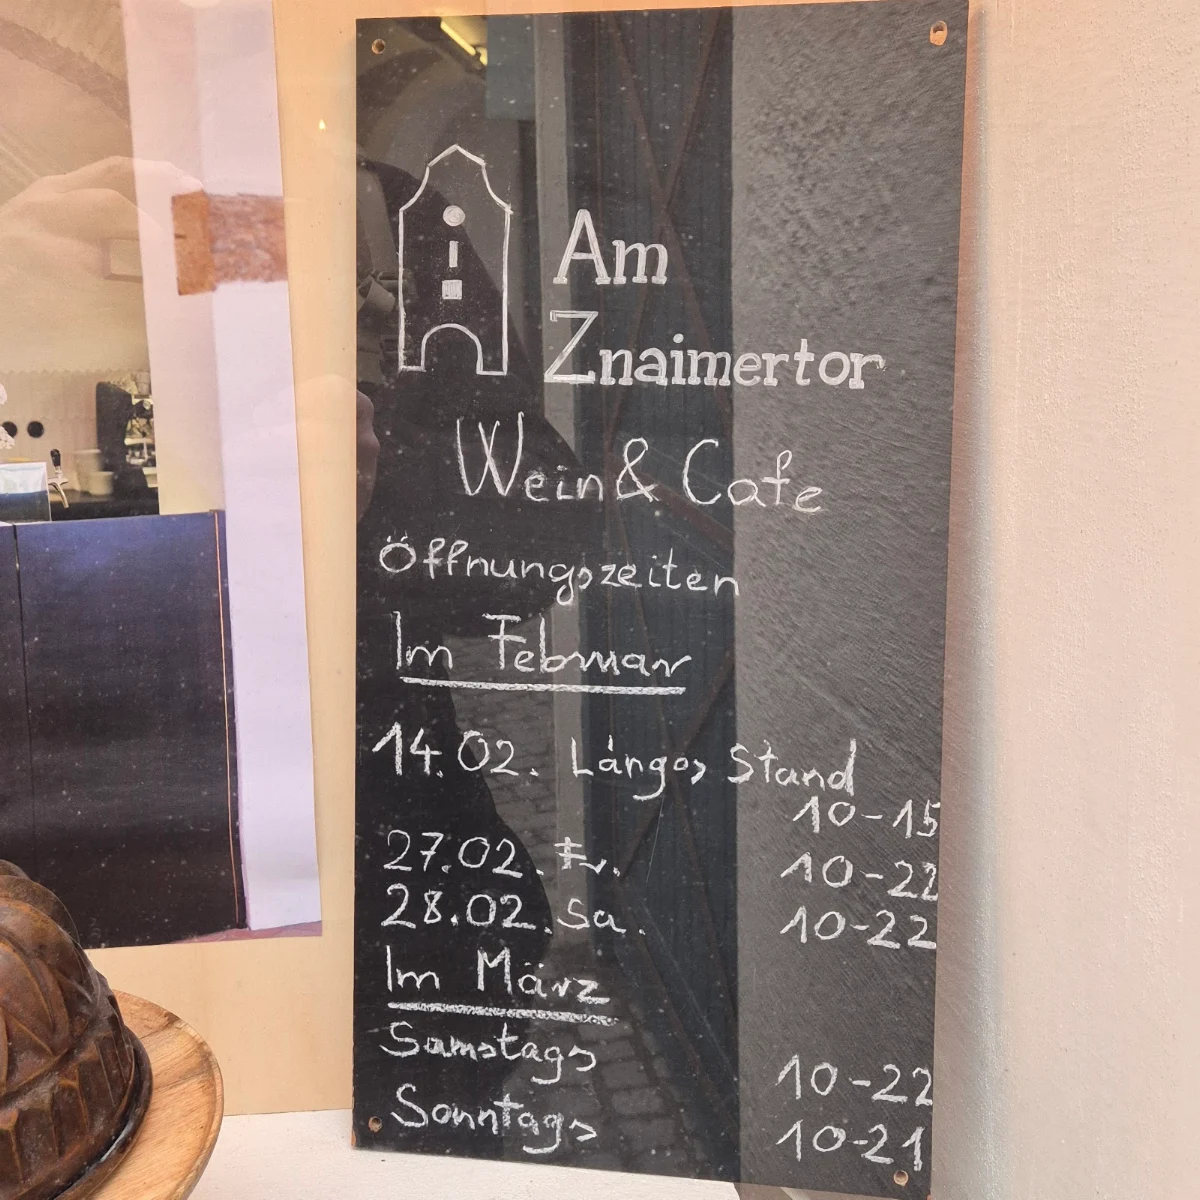 Am
Znaimertor
Wein & Cafe
Öffnungszeiten
Im Februar
14.02. Lángos Stand
10-15
27.02. Fr. 10-22
28.02. Sa. 10-22
Im März
Samstags 10-22
Sonntags 10-21